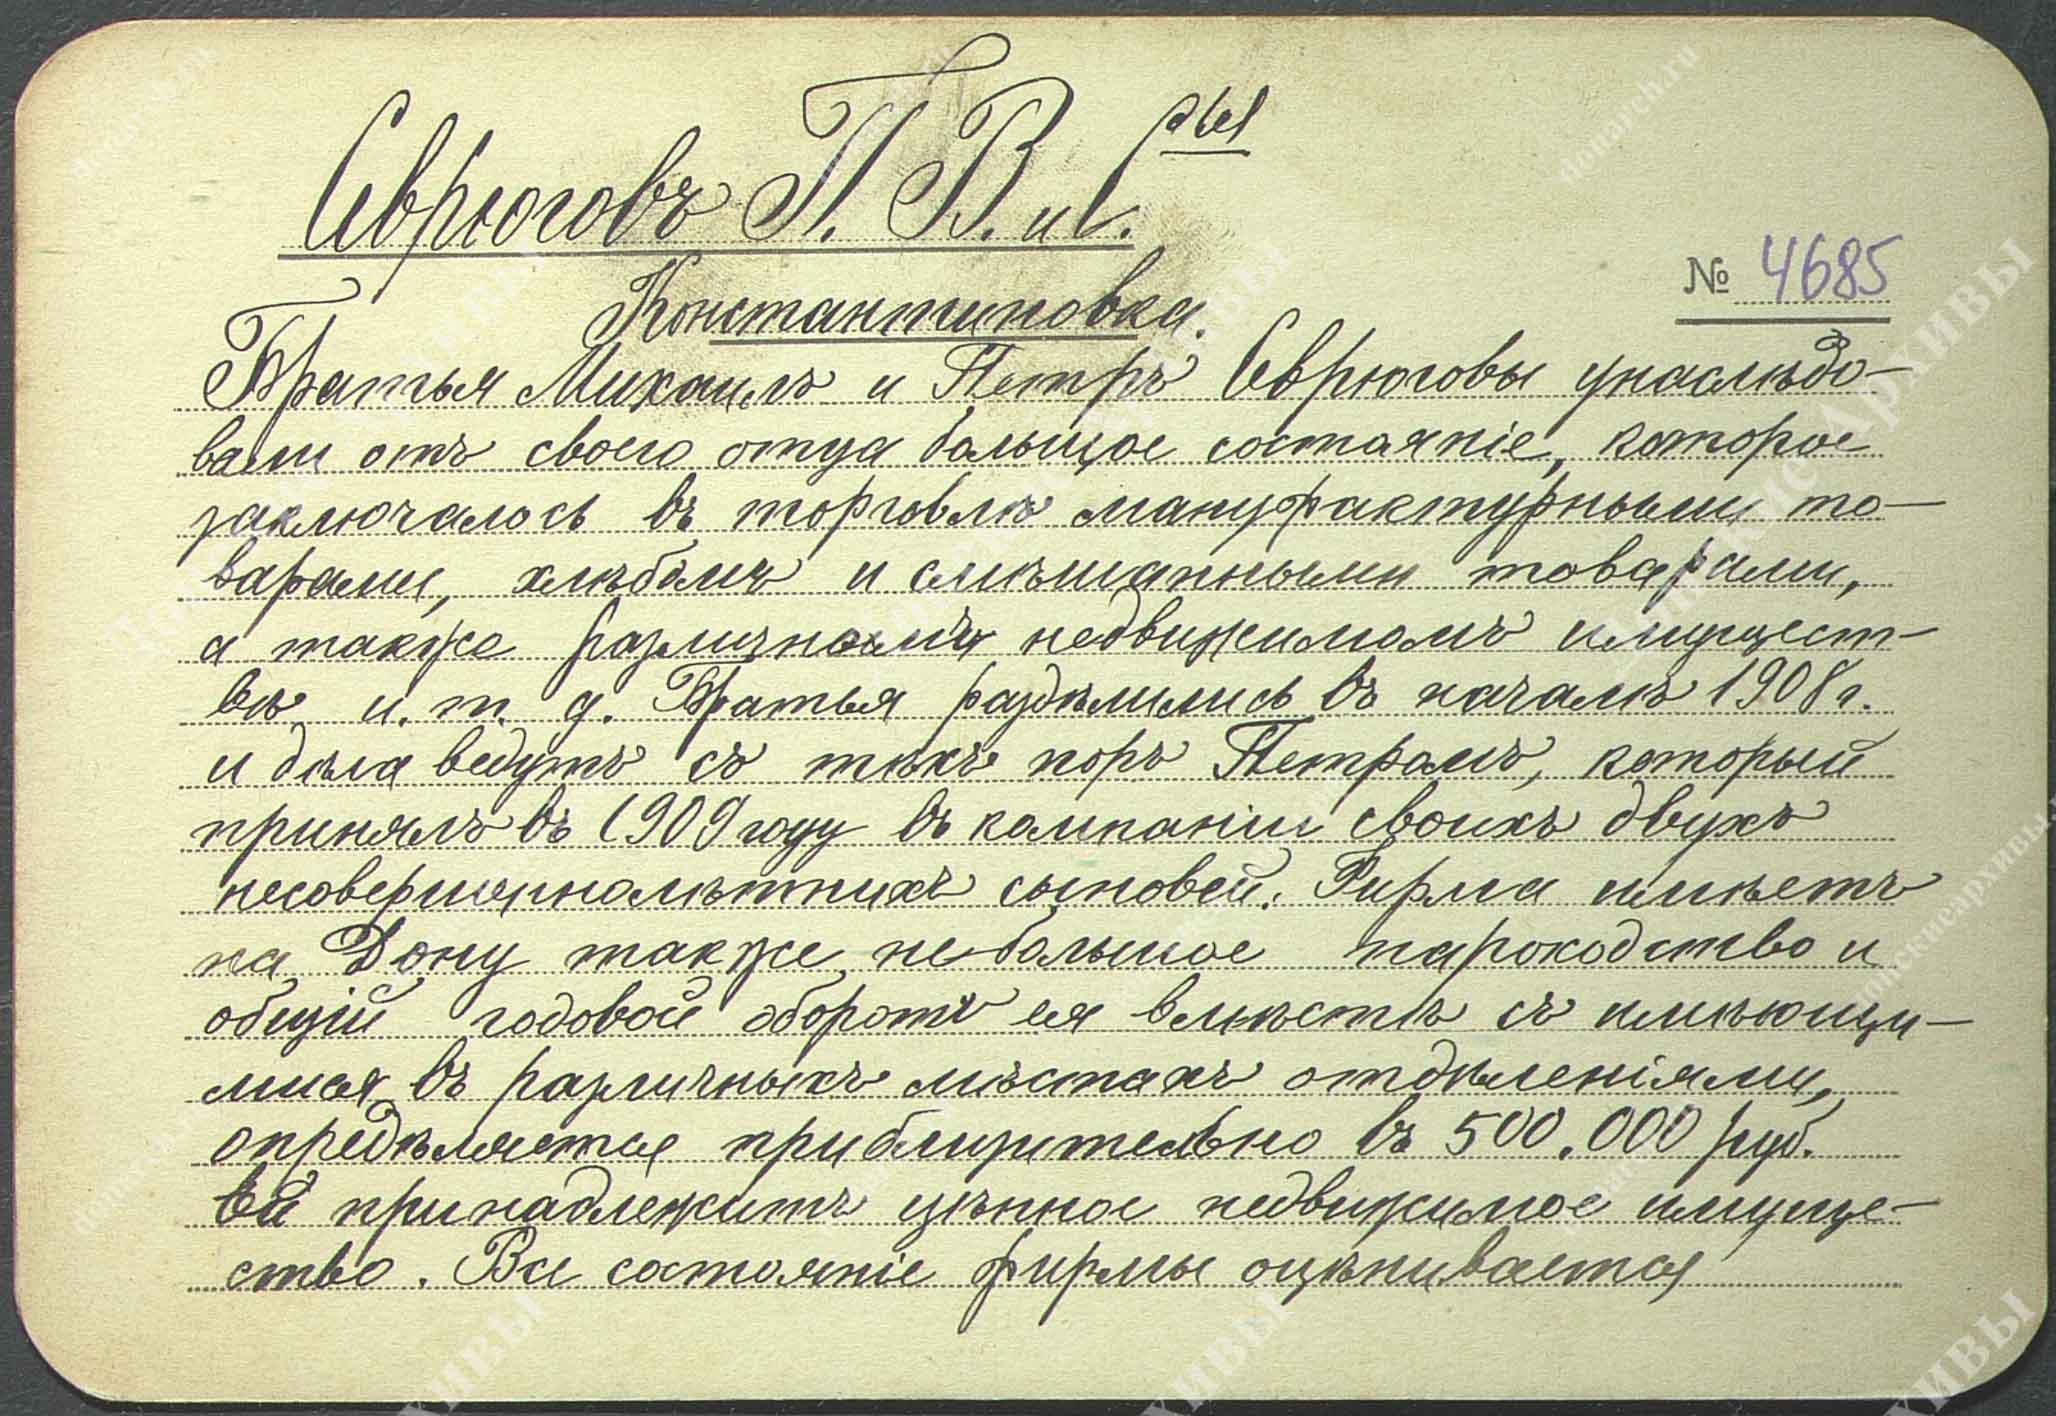 Севрюговъ П. В. и С. ья
Константиновка.
№ 4685
Братья Михаилъ и Петръ Севрюговы унаслѣдо-
вали отъ своего отца большое состояніе, которое
заключалось въ торговлѣ мануфактурными то-
варами, хлѣбомъ и смѣшанными товарами,
а также различномъ недвижимомъ имущест-
вѣ и. т. д. Братья раздѣлились въ началѣ 1908 г.
и дѣла ведутъ съ тѣхъ поръ Петромъ, который
принялъ въ 1909 году въ компаніи своихъ двухъ
несовершеннолѣтнихъ сыновей. Фирма имѣетъ
на Дону также небольшое пароходство и
общій годовой оборотъ ея вмѣстѣ съ имѣющи-
мися въ различныхъ мѣстахъ отдѣленіями,
опредѣляется приблизительно въ 500.000 руб.
Ей принадлежитъ цѣнное недвижимое имуще-
ство. Все состояніе фирмы оцѣнивается